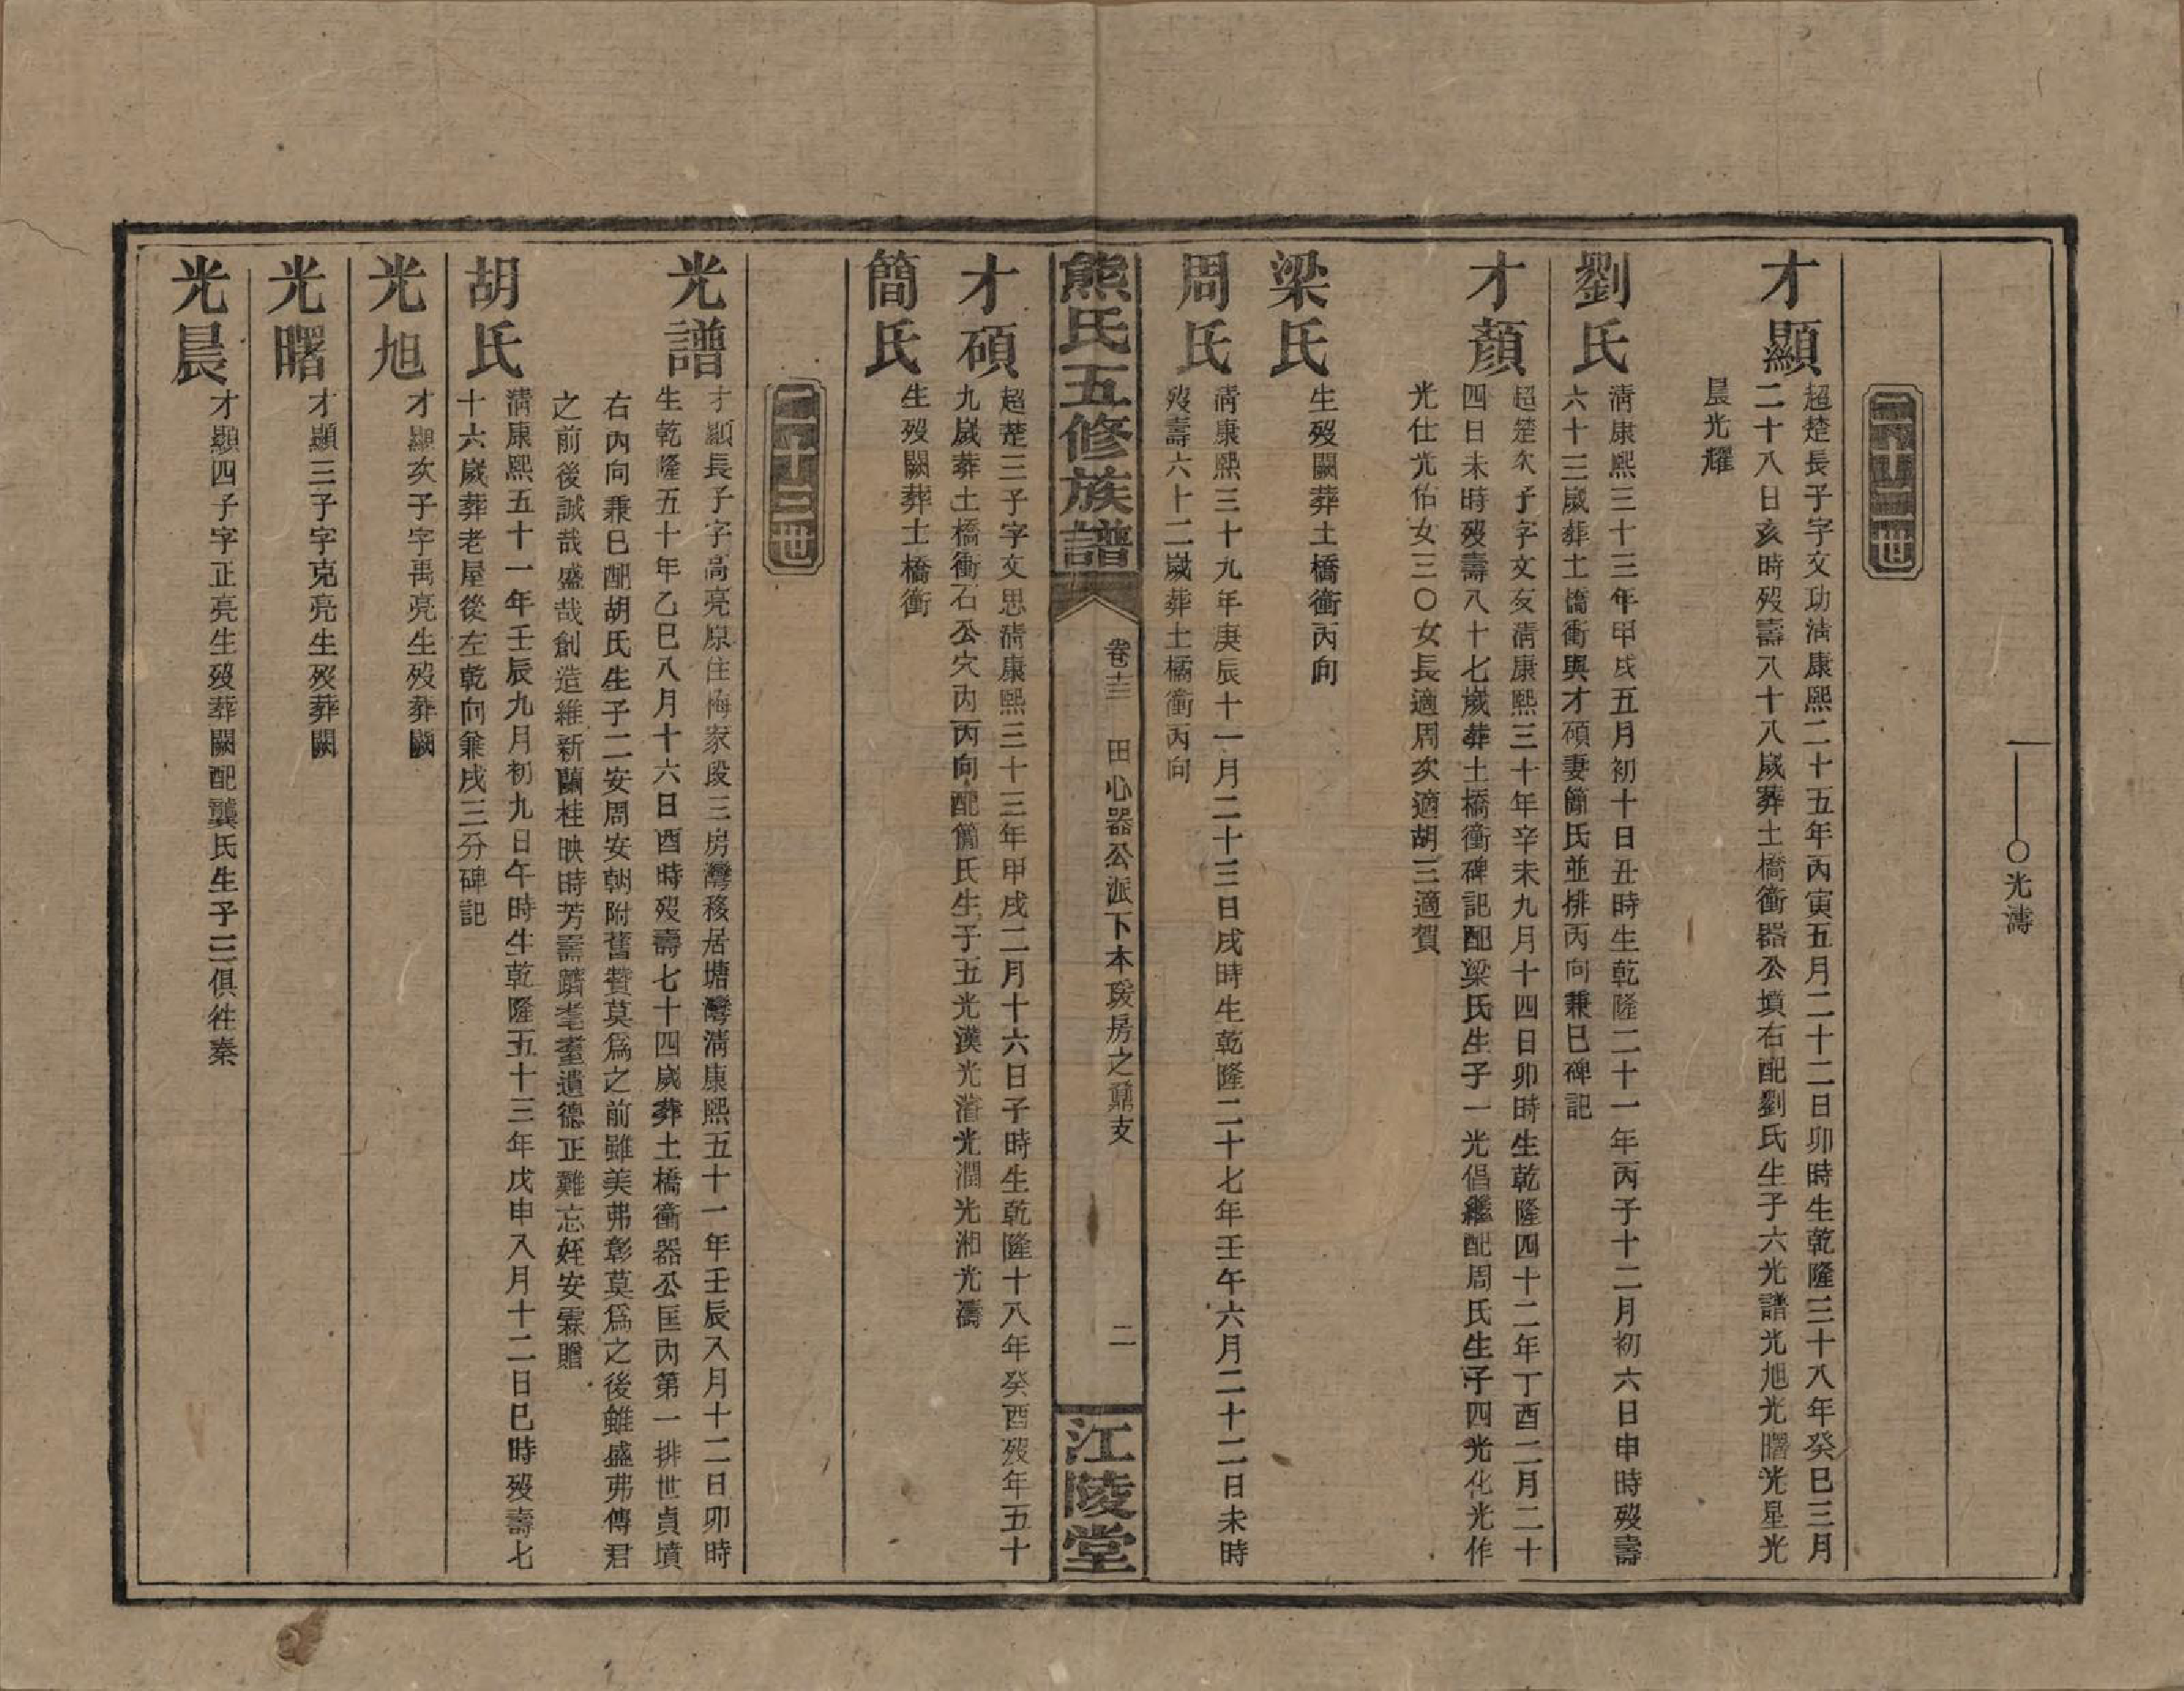 ○光濤
二十二世
才顯
超楚長子字文功清康熙二十五年丙寅五月二十二日卯時生乾隆三十八年癸巳三月
二十八日亥時歿壽八十八歲葬土橋衝器公墳右配劉氏生子六光譜光旭光曙光星光
晨光耀
劉氏
清康熙三十三年甲戌五月初十日丑時生乾隆二十一年丙子十二月初六日申時歿壽
六十三歲葬土橋衝與才碩妻簡氏並排丙向兼巳碑記
才顏
超楚次子字文友清康熙三十年辛未九月十四日卯時生乾隆四十二年丁酉二月二十
四日未時歿壽八十七歲葬土橋衝碑記配梁氏生子一光倡繼配周氏生子四光化光作
光仕光佑女三○女長適周次適胡三適賀
梁氏
生歿闕葬土橋衝丙向
周氏
清康熙三十九年庚辰十一月二十三日戌時生乾隆二十七年壬午六月二十二日未時
歿壽六十二歲葬土橋衝丙向
熊氏五修族譜
卷十三 田心器公派下本瑗房之鼐支 二
江陵堂
才碩
超楚三子字文思清康熙三十三年甲戌二月十六日子時生乾隆十八年癸酉歿年五十
九歲葬土橋衝石公穴內丙向配簡氏生子五光漢光濳光潤光湘光濤
簡氏
生歿闕葬土橋衝
二十三世
光譜
才顯長子字高亮原住梅家段三房灣移居塘灣清康熙五十一年壬辰八月十二日卯時
生乾隆五十年乙巳八月十六日酉時歿壽七十四歲葬土橋衝器公匡內第一排世貞墳
右丙向兼巳配胡氏生子二安周安朝附舊贊莫爲之前雖美弗彰莫爲之後雖盛弗傳君
之前後誠哉盛哉創造維新蘭桂映時芳壽躋耄耋遺德正難忘姪安霖贈
胡氏
清康熙五十一年壬辰九月初九日午時生乾隆五十三年戊申八月十二日巳時歿壽七
十六歲葬老屋後左乾向兼戌三分碑記
光旭
才顯次子字禹亮生歿葬闕
光曙
才顯三子字克亮生歿葬闕
光晨
才顯四子字正亮生歿葬闕配龔氏生子三俱往秦